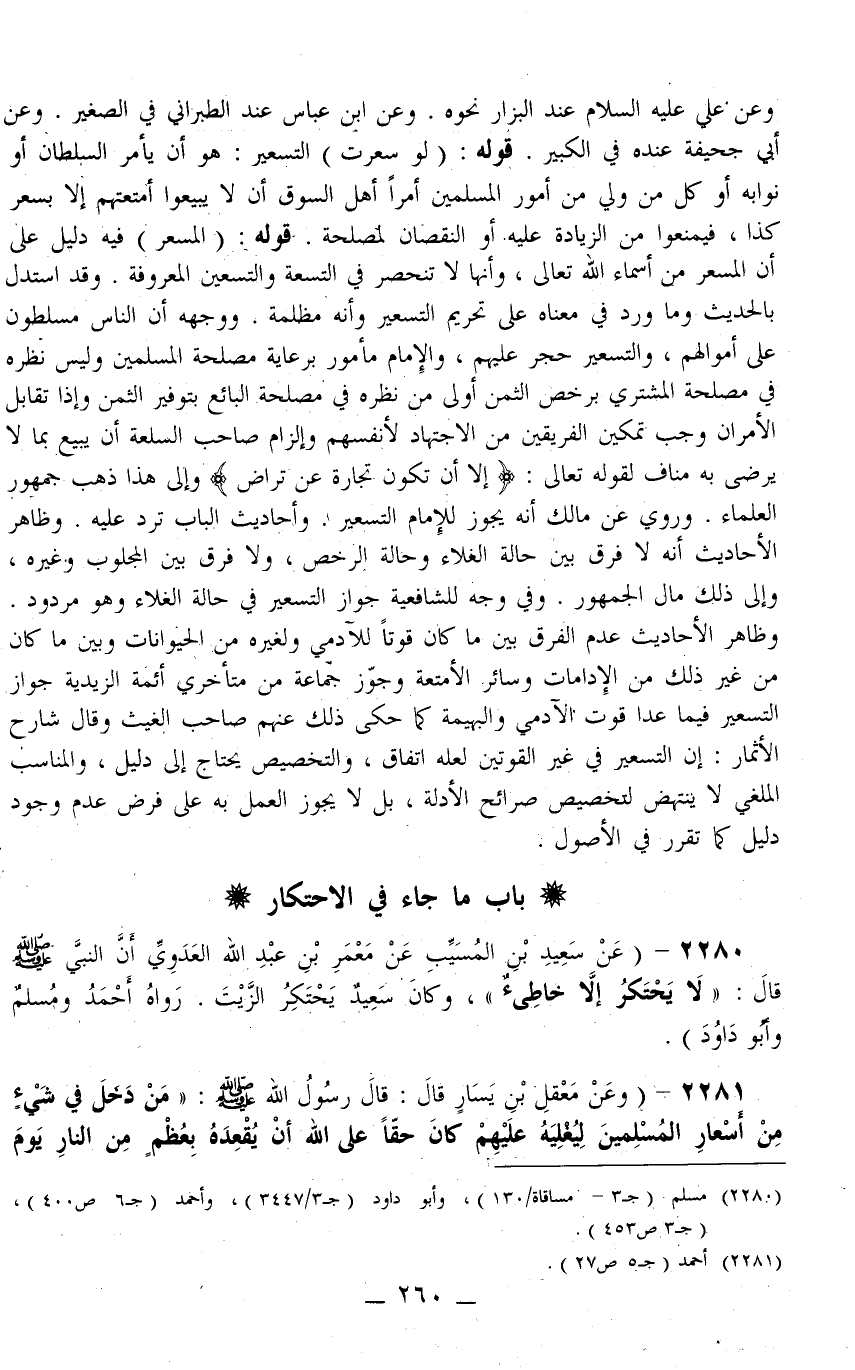 وعن علي عليه السلام عند البزار نحوه . وعن ابن عباس عند الطبراني في الصغير . وعن
أبي جحيفة عنده في الكبير . قوله : ( لو سعرت ) التسعير : هو أن يأمر السلطان أو
نوابه أو كل من ولي من أمور المسلمين أمراً أهل السوق أن لا يبيعوا أمتعتهم إلا بسعر
كذا ، فيمنعوا من الزيادة عليه أو النقصان لمصلحة . قوله : ( المسعر ) فيه دليل على
أن المسعر من أسماء الله تعالى ، وأنها لا تنحصر في التسعة والتسعين المعروفة . وقد استدل
بالحديث وما ورد في معناه على تحريم التسعير وأنه مظلمة . ووجهه أن الناس مسلطون
على أموالهم ، والتسعير حجر عليهم ، والإمام مأمور برعاية مصلحة المسلمين وليس نظره
في مصلحة المشتري برخص الثمن أولى من نظره في مصلحة البائع بتوفير الثمن وإذا تقابل
الأمران وجب تمكين الفريقين من الاجتهاد لأنفسهم وإلزام صاحب السلعة أن يبيع بما لا
يرضى به مناف لقوله تعالى : ﴿ إلا أن تكون تجارة عن تراض ﴾ وإلى هذا ذهب جمهور
العلماء . وروي عن مالك أنه يجوز للإمام التسعير . وأحاديث الباب ترد عليه . وظاهر
الأحاديث أنه لا فرق بين حالة الغلاء وحالة الرخص ، ولا فرق بين المجلوب وغيره ،
وإلى ذلك مال الجمهور . وفي وجه للشافعية جواز التسعير في حالة الغلاء وهو مردود .
وظاهر الأحاديث عدم الفرق بين ما كان قوتاً للآدمي ولغيره من الحيوانات وبين ما كان
من غير ذلك من الإدامات وسائر الأمتعة وجوّز جماعة من متأخري أئمة الزيدية جواز
التسعير فيما عدا قوت الآدمي والبهيمة كما حكى ذلك عنهم صاحب الغيث وقال شارح
الأثمار : إن التسعير في غير القوتين لعله اتفاق ، والتخصيص يحتاج إلى دليل ، والمناسب
الملغي لا ينتهض لتخصيص صرائح الأدلة ، بل لا يجوز العمل به على فرض عدم وجود
دليل كما تقرر في الأصول .
باب ما جاء في الاحتكار
٢٢٨٠ – ( عَنْ سَعِيدِ بْنِ المُسَيِّبِ عَنْ مَعْمَرِ بْنِ عبْدِ الله العَدَوِيِّ أَنَّ النبيَّ ﷺ
قالَ : « لَا يَحْتَكرُ إلَّا خاطِىءٌ » ، وكانَ سَعِيدٌ يَحْتَكِرُ الزَّيْتَ . رَواهُ أَحْمَدُ ومُسلمٌ
وأبُو دَاوُدَ ) .
٢٢٨١ – ( وعَنْ مَعْقلِ بْنِ يَسَارٍ قالَ : قالَ رسُولُ الله ﷺ : « مَنْ دَخَلَ في شَيْءٍ
مِنْ أَسْعارِ المُسْلِمينَ لِيُغْلِيَهُ عَلَيْهِمْ كانَ حقّاً على الله أنْ يُقْعِدَهُ بِعُظْمٍ مِن النارِ يَومَ
(٢٢٨٠) مسلم ( جـ٣ – مساقاة/١٣٠ ) ، وأبو داود ( جـ٣/٣٤٤٧ ) ، وأحمد ( جـ٦ ص٤٠٠ ) ،
( جـ٣ ص٤٥٣ ) .
(٢٢٨١) أحمد ( جـ٥ ص٢٧ ) .
– ٢٦٠ –